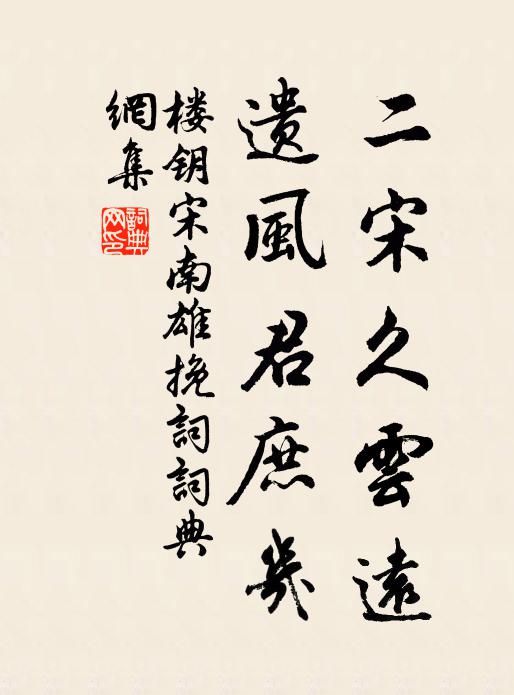 二宋久雲遠
遺風君庶幾
楼钥宋南雄挽詞詞典
網集
詞典
网印